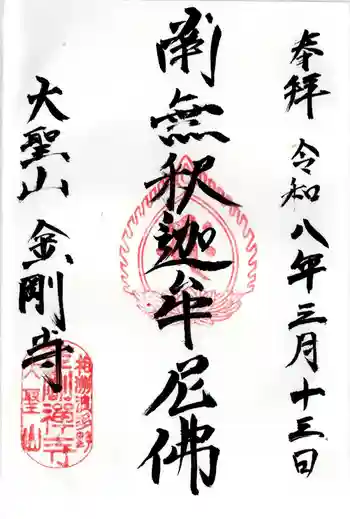 奉拝 令和八年三月十三日
南無釈迦牟尼佛
大聖山 金剛寺
金剛禅寺
大聖山